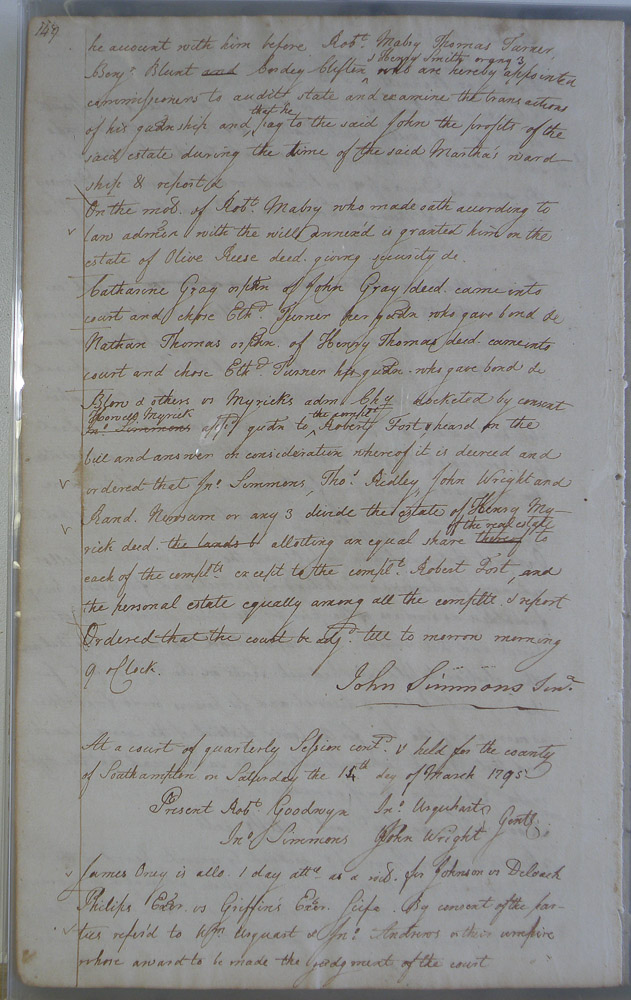 149
he account with him before Robt. Mabry Thomas Turner
& Henry Smith or any 3
Benj. Blunt and Cordey Clifton who are hereby appointed
commissioners to audit state and examine the transactions
that he
of his guanship and pay to the said John the profits of the
said estate during the time of the said Martha's ward
ship & report &
On the mod. of Robt. Mabry who made oath according to
law admon with the will annex'd is granted him on the
estate of Olive Reese decd. giving security &c
Catharine Gray orphn of John Gray decd. came into
court and chose Ethd. Turner her gudn who gave bond &c
Nathan Thomas orphn. of Henry Thomas decd. came into
court and chose Ethd. Turner his gudn. who gave bond &c
Blow & others vs Myrick's adm Chy docketed by consent
Howell Myrick the complt.
Jno. Simmons appd gudn to Robert Fort & heard on the
bill and answer on consideration whereof it is decreed and
ordered that Jno. Simmons, Thos. Ridley John Wright and
Rand. Newsum or any 3 divide the estate of Henry My-
of the real estate
rick decd. the lands & allotting an equal share thereof to
each of the complts. except to the complt. Robert Fort, and
the personal estate equally among all the complts. & report
Ordered that the court be adjd. till to morrow morning
9 oClock.
John Simmons Junr.
At a court of quarterly Session contd. & held for the county
of Southampton on Saturday the 14th day of March 1795
Present Robt Goodwyn Jno. Urquhart Gentl.
Jno Simmons John Wright
James Oney is allo. 1 day atte. as a wit. for Johnson vs Deloach
Philips Exor. vs Griffin's Exor. By consent of the par-
ties refer'd to Wm Urquart & Jno. Andrews & their umpire
whose award to be made the judgment of the court